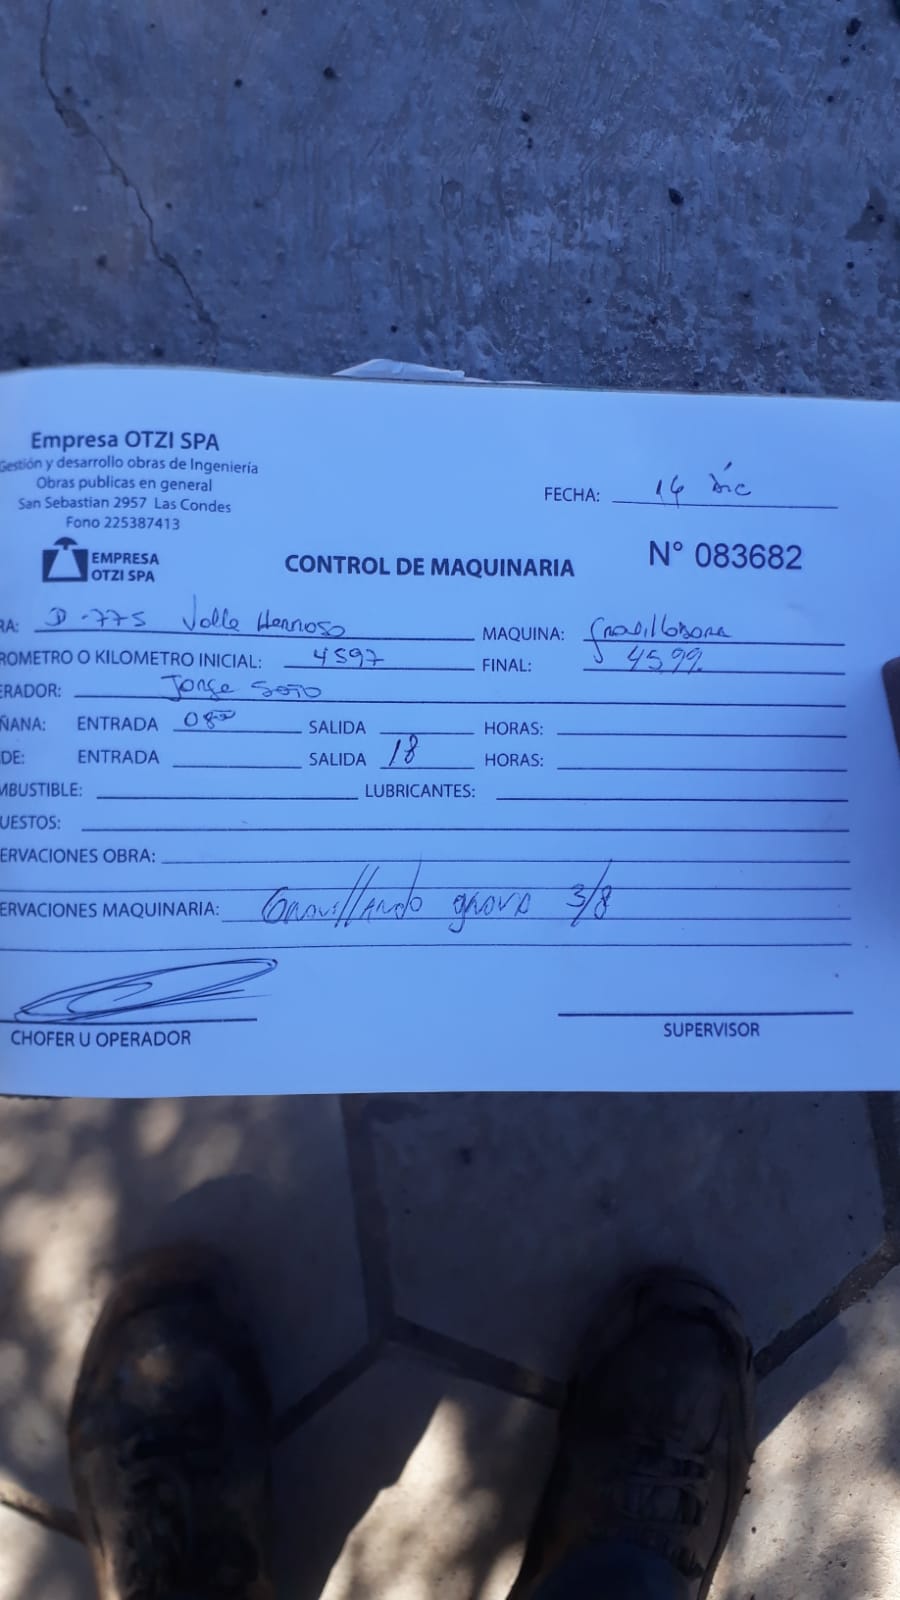 Empresa OTZI SPA
Gestión y desarrollo obras de Ingeniería
Obras publicas en general
San Sebastian 2957 Las Condes
Fono 225387413
FECHA: 14 Dic
EMPRESA
OTZI SPA
CONTROL DE MAQUINARIA
N° 083682
RA: D-775 Valle Hermoso MAQUINA: Gravilladora
ROMETRO O KILOMETRO INICIAL: 4597 FINAL: 4599
ERADOR: Jorge Soto
ÑANA: ENTRADA 08⁰⁰ SALIDA HORAS:
DE: ENTRADA SALIDA 18 HORAS:
MBUSTIBLE: LUBRICANTES:
UESTOS:
ERVACIONES OBRA:
ERVACIONES MAQUINARIA: Gravillando grava 3/8
CHOFER U OPERADOR
SUPERVISOR